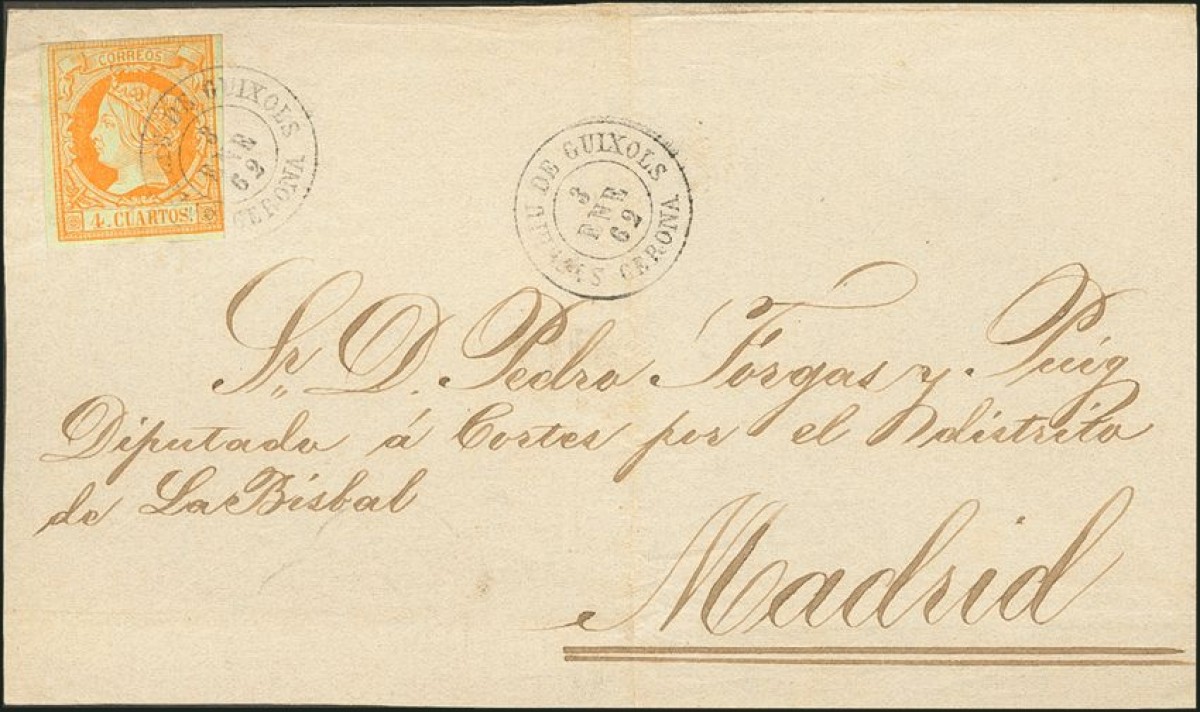 CORREOS
4. CUARTOS.
DE GUIXOLS
3
ENE
62
GERONA
FELIU DE GUIXOLS
3
ENE
62
GERONA
Sr. D. Pedro Forgas y Puig
Diputado á Cortes por el distrito
de La Bisbal
Madrid